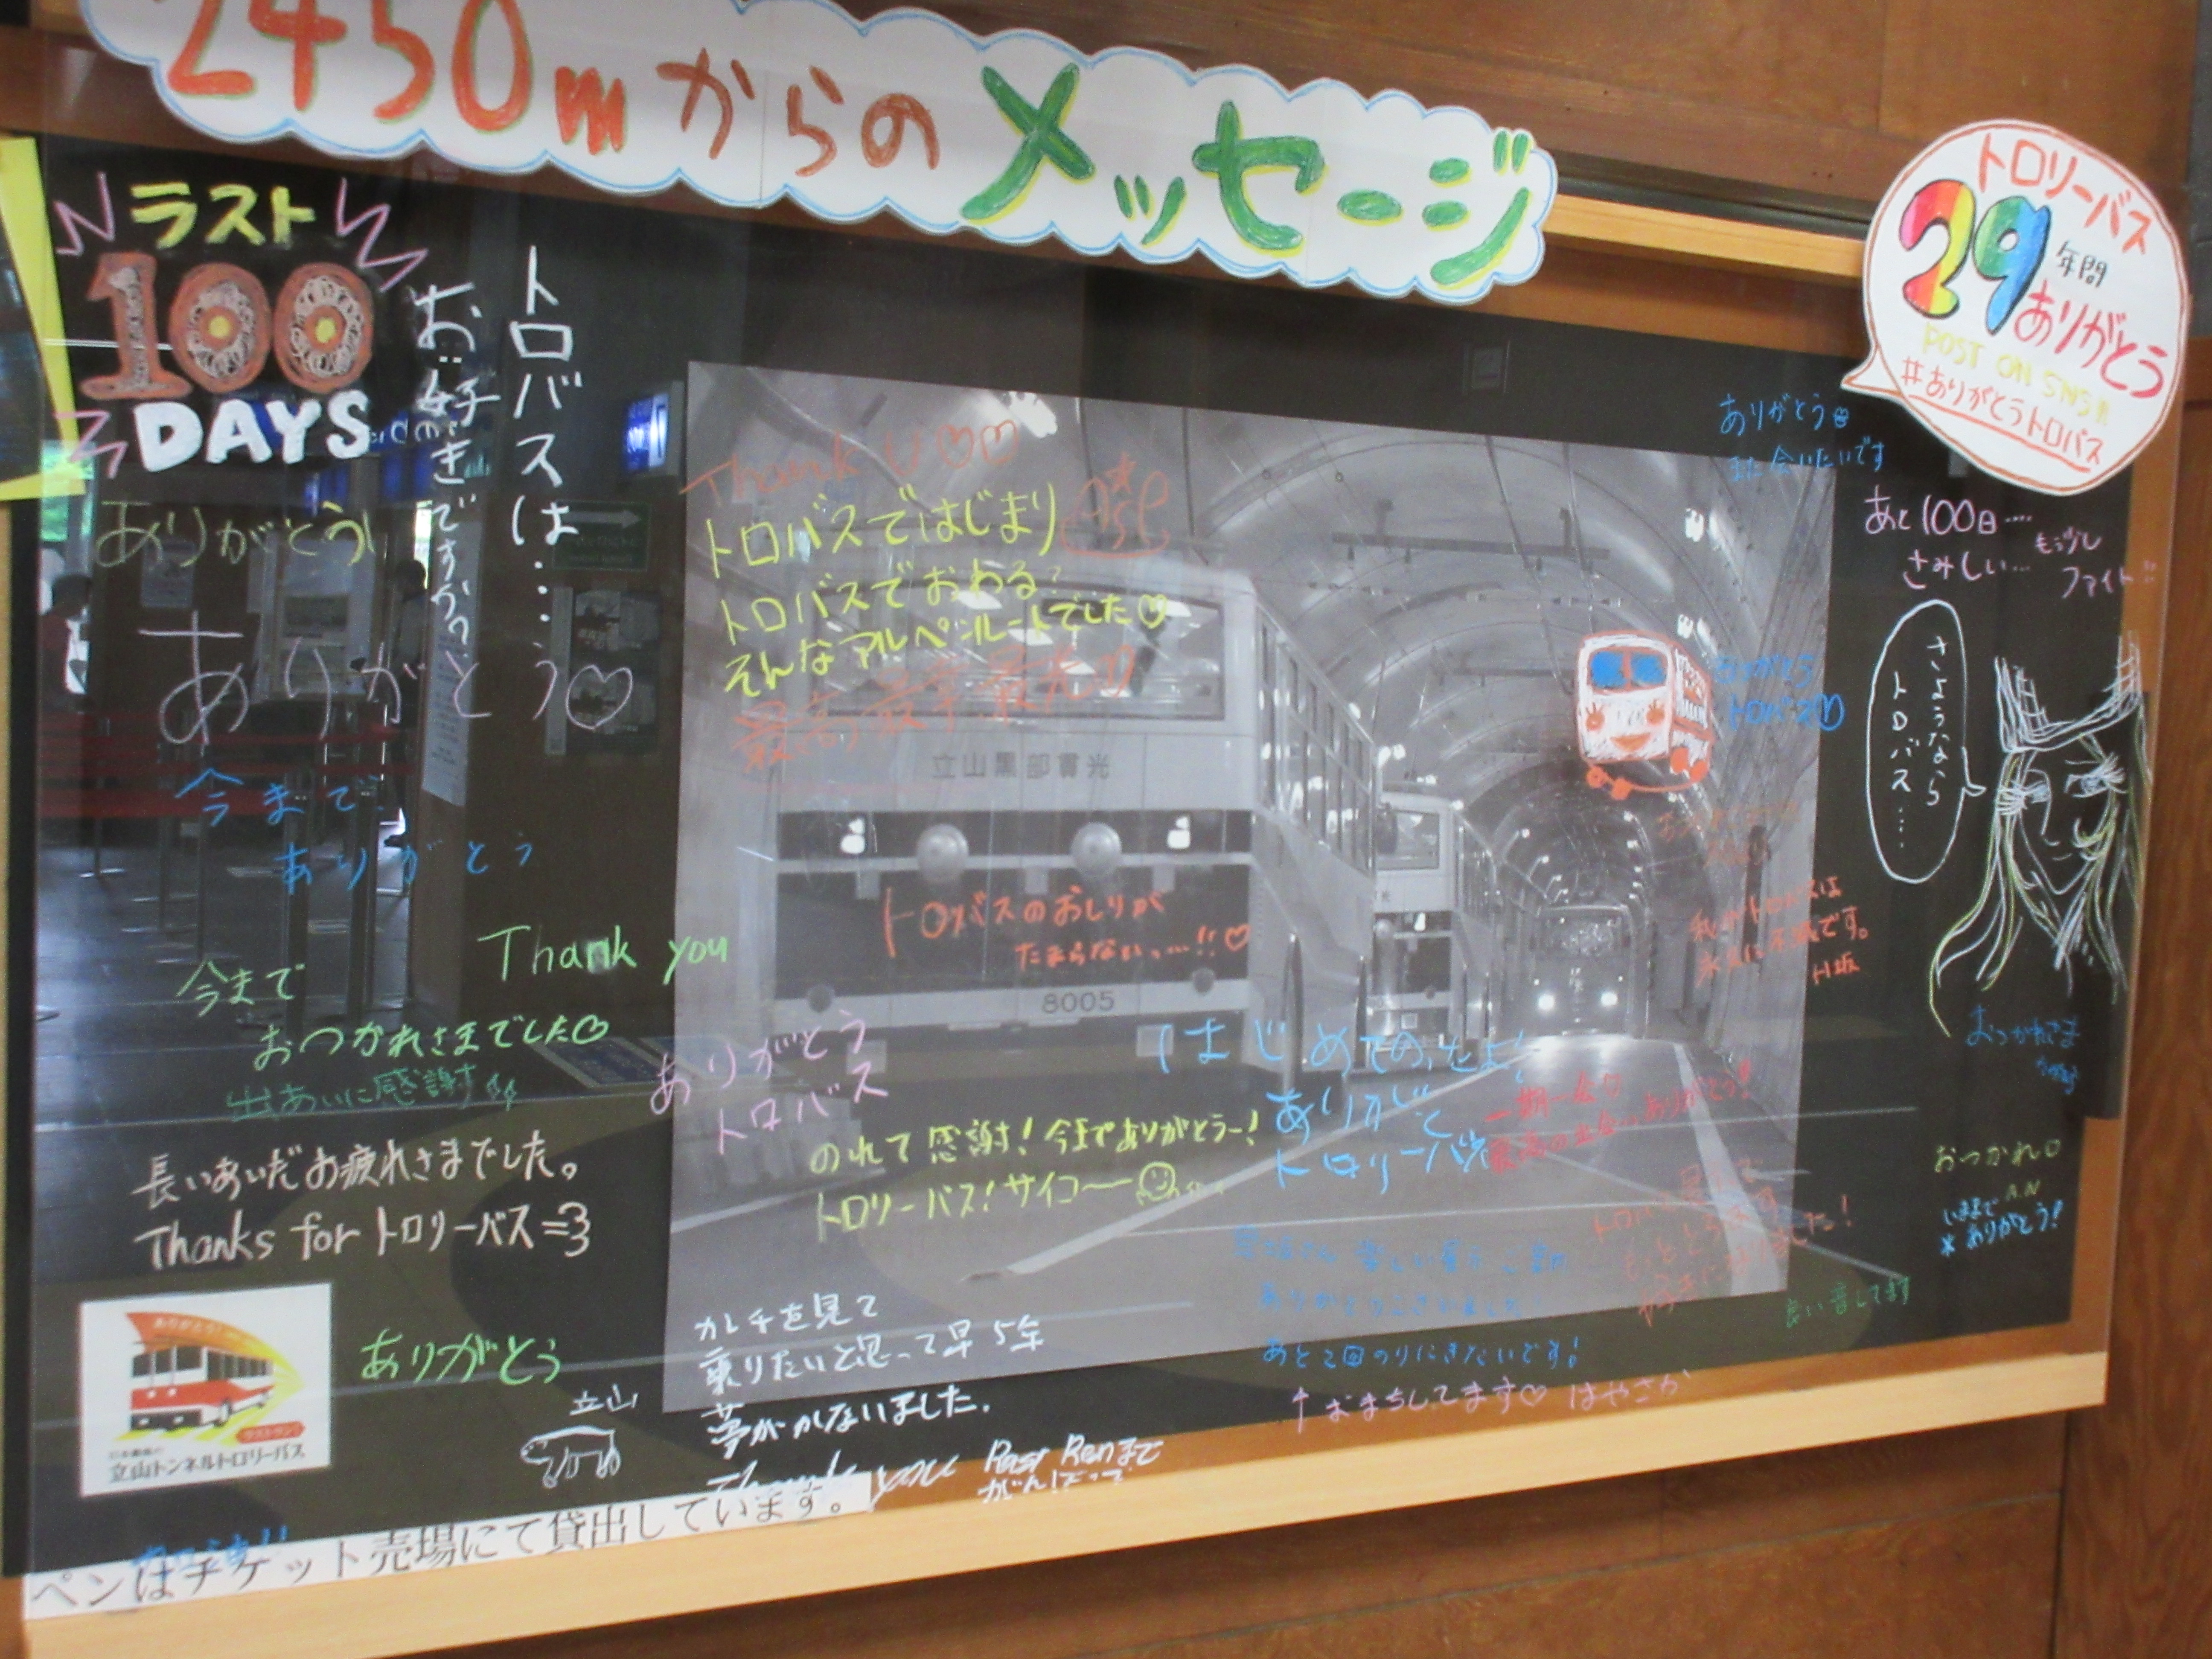 2450mからのメッセージ
トロリーバス
29年間
ありがとう
POST ON SNS!!
#ありがとうトロバス
ラスト
100
DAYS
トロバスは……
お好きですか?
ありがとう
ありがとう♡
今まで
ありがとう
Thank you
今まで
おつかれさまでした♡
出あいに感謝
長いあいだお疲れさまでした。
Thanks for トロリーバス=3
ありがとう
立山
立山トンネルトロリーバス
ペンはチケット売場にて貸出しています。
Thank U♡♡
トロバスではじまり
トロバスでおわる
そんなアルペンルートでした♡
立山黒部貫光
トロバスのおしりが
たまらないっ…!!♡
8005
ありがとう
トロバス
のれて感謝!今までありがとうー!
トロリーバス!サイコ〜
ありがとう
トロリーバス
一期一会♡
カレチを見て
乗りたいと思って早5年
夢がかないました。
Thank you
あと2回のりにきたいです!
↑おまちしてます♡ はやさか
良い音してます
ありがとう
また会いたいです
あと100日….
さみしい…
もう少し
ファイト!!
さようなら
トロバス…
おつかれさま
おつかれ♡
A.N
いままで
ありがとう!